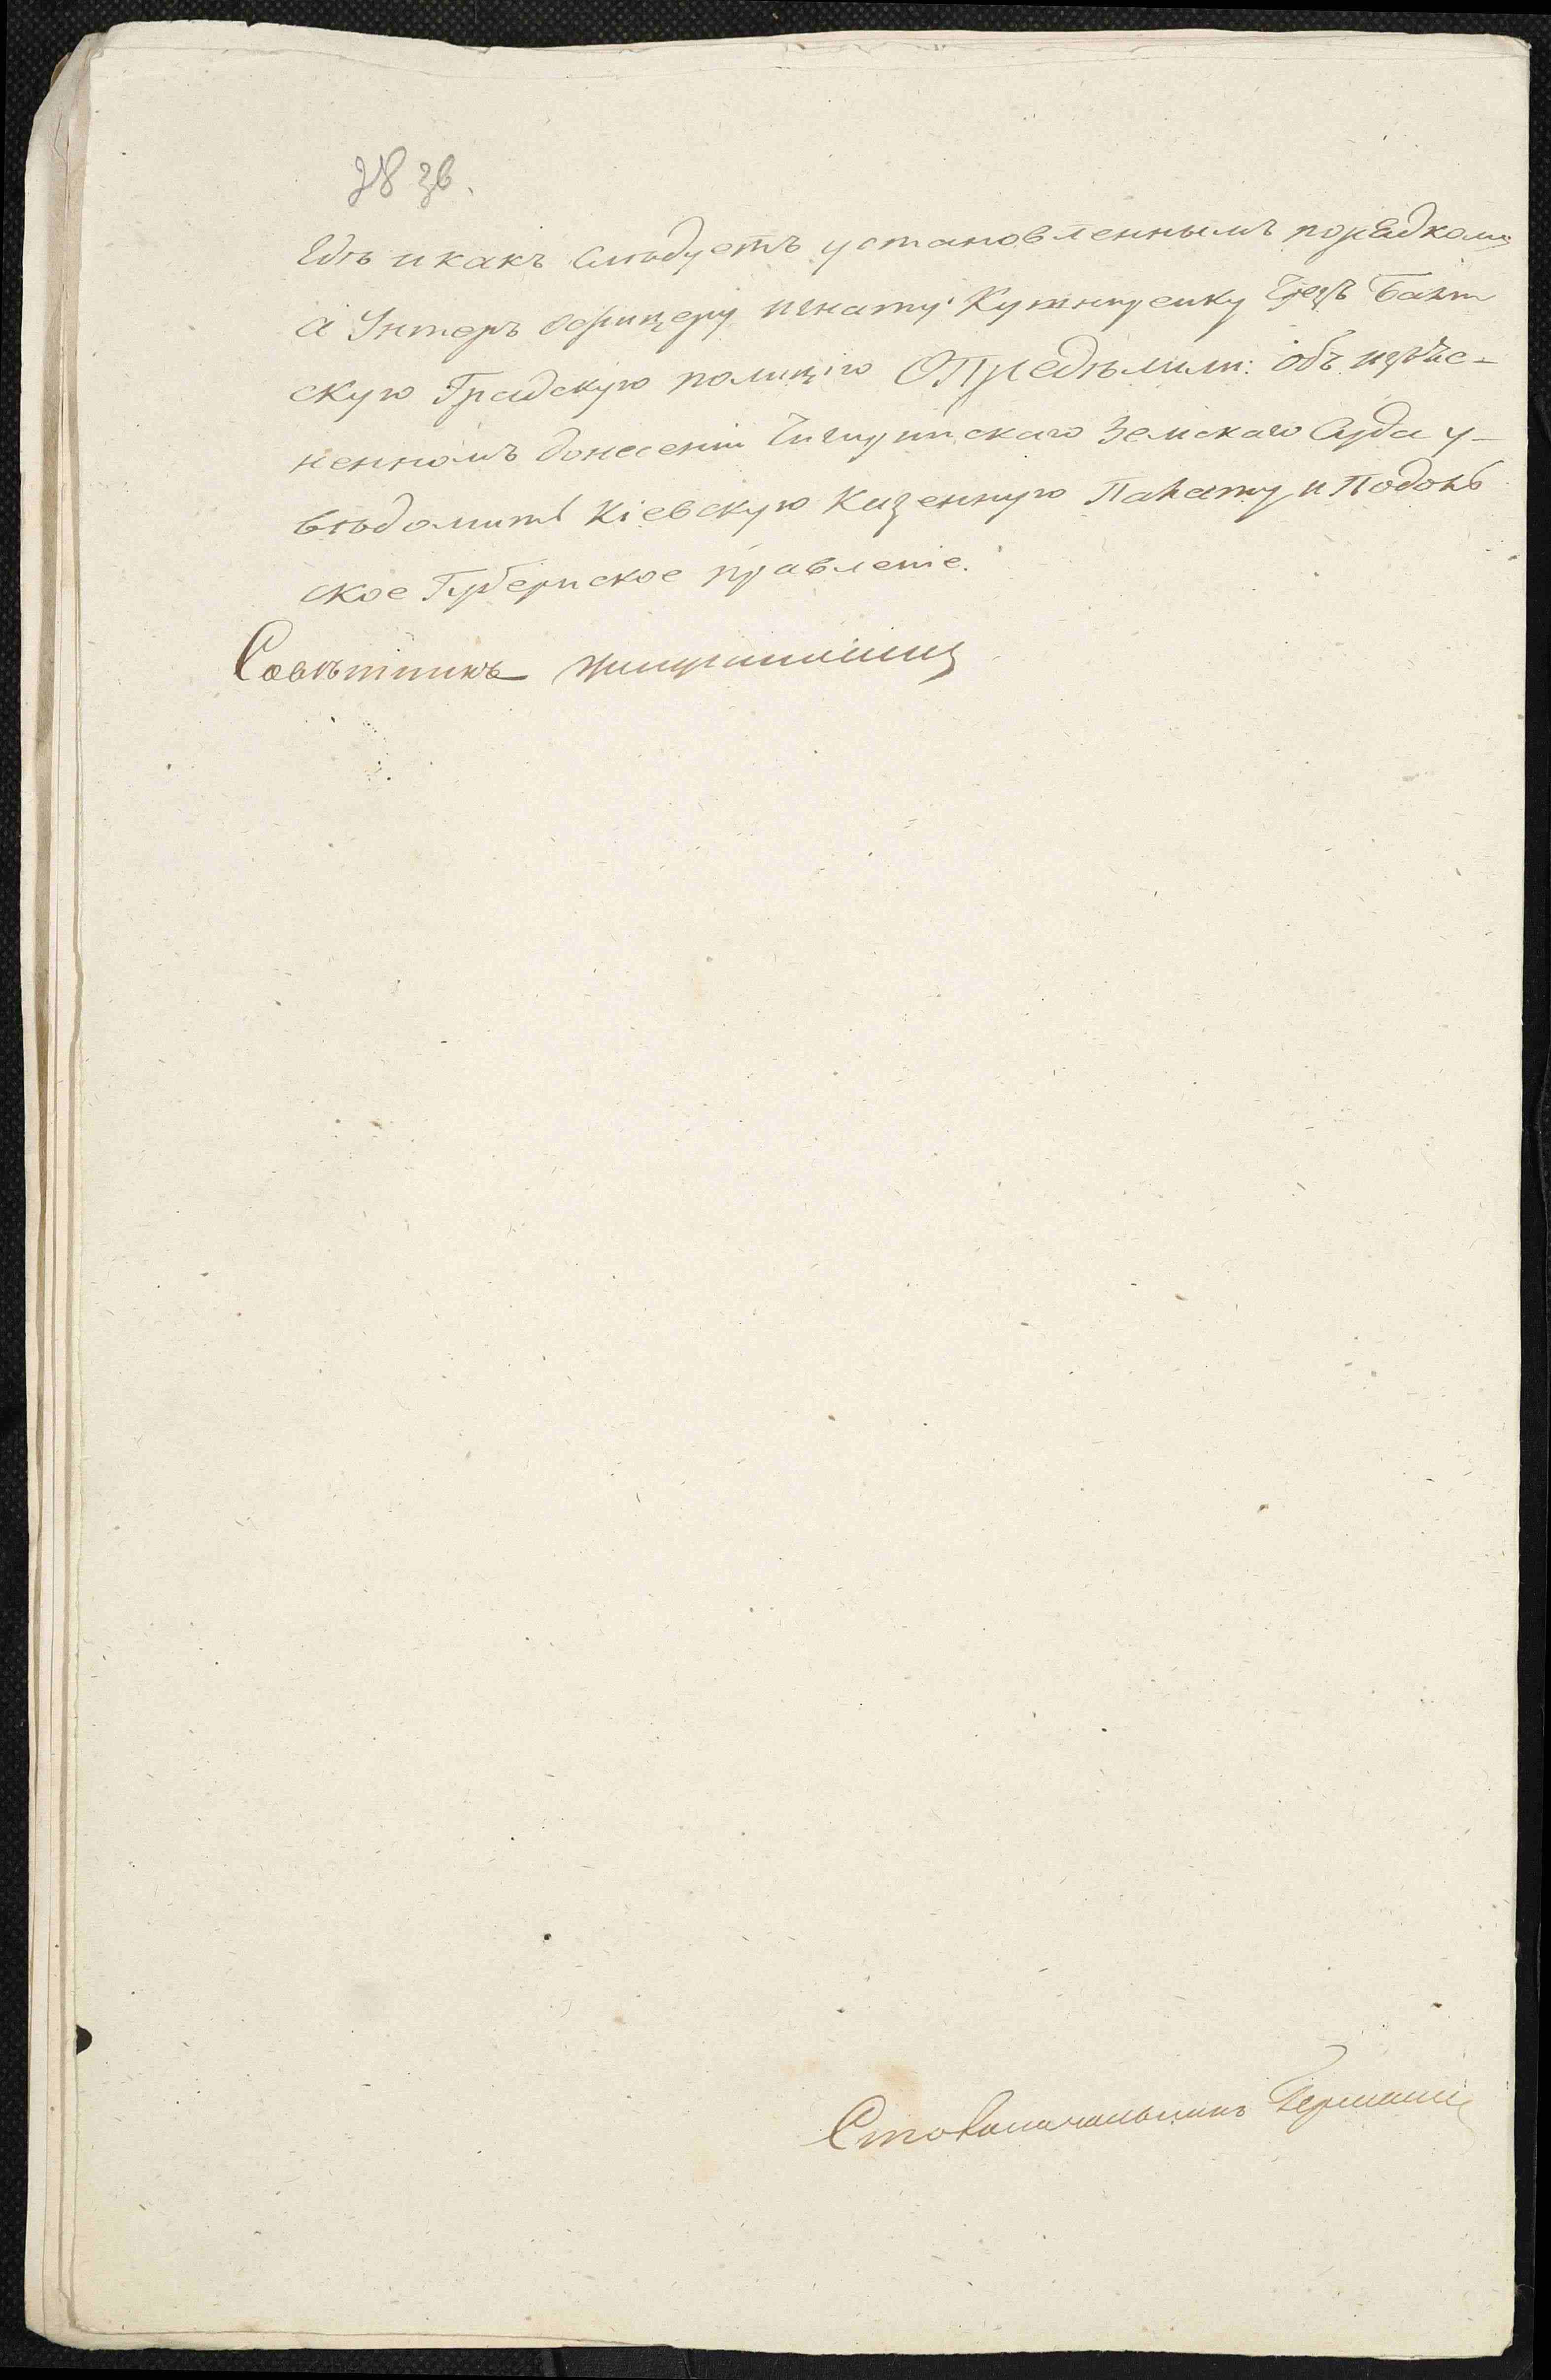 28 зв.
Гдѣ и какъ слѣдуетъ установленнымъ порядкомъ
а Унтеръ офицеру Игнату Кушниренку чрезъ Балт
скую Градскую полицію Опредѣлили: объ изъяс-
ненномъ донесеніи Чигиринскаго Земскаго Суда у-
вѣдомить Кіевскую Казенную Палату и Подоль
ское Губернское правленіе.
Совѣтникъ
Столоначальникъ